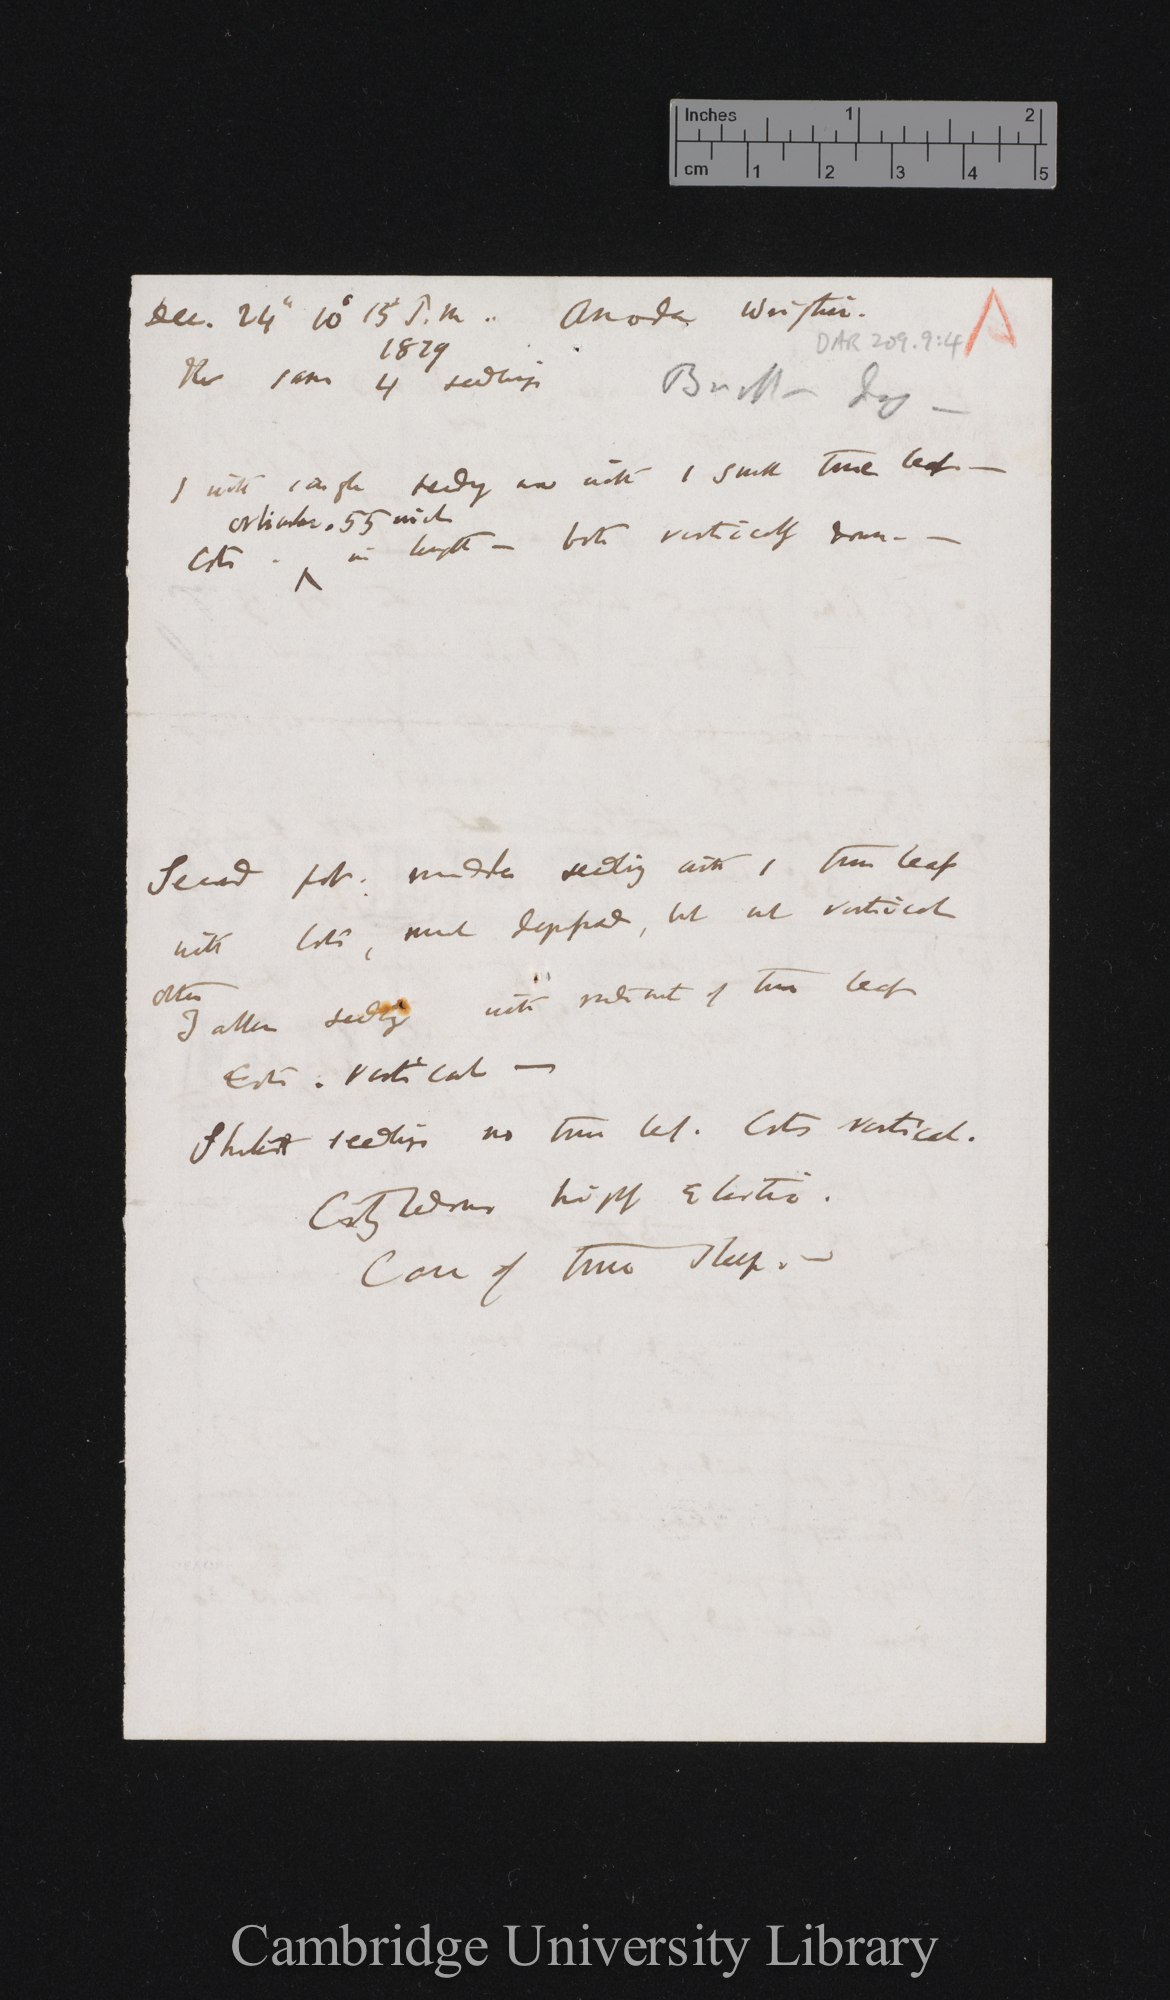 Inches 1 2
cm 1 2 3 4 5
Dec. 24" 10° 15' P.m.. Anoda Wrightii.
DAR 209.9:4
1879
The same 4 seedlings
day —
with single seedling now with 1 small true leaf —
.55 inch
Cots. ^ in length — both vertically down —
Second pot. middle seedling with 1 true leaf
with Cots, much depressed, but not vertical
other
seedling with rudiment of true leaf
Cots. vertical —
seedlings no true leaf. Cots vertical.
Cotyledons highly elastic.
Case of true sleep. —
Cambridge University Library